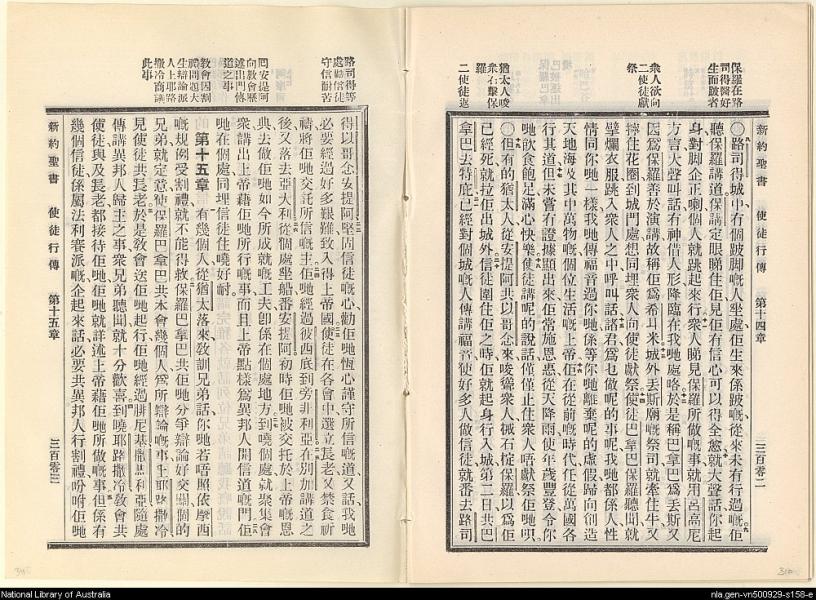 新約聖書 使徒行傳 第十四章 三百零二
保羅在路
司得醫好
生而跛者
衆人欲向
二使徒獻
祭
猶太人唆
衆石擊保
羅
二使徒返
〇路司得城中有個跛脚嘅人坐處佢生來係跛嘅從來未有行過嘅佢
聽保羅講道保羅定眼睇住佢見佢有信心可以得全愈就大聲話你起
身對脚企正喇個人就跳起來行衆人睇見保羅所做嘅事就用呂高尼
方言大聲叫話有神借人形降臨在我哋處咯於是稱巴拿巴爲丟斯又
因爲保羅善於演講故稱佢爲希耳米城外丟斯廟嘅祭司就牽住牛又
擰住花圈到城門處想同埋衆人向使徒獻祭使徒巴拿巴保羅聽聞就
擘爛衣服跳入衆人之中呼叫話諸君爲乜做呢的事呢我哋都係人性
情同你哋一樣我哋傳福音過你哋係等你哋離棄呢的虛假歸向創造
天地海及其中萬物嘅個位生活嘅上帝佢在從前嘅時代任從萬國各
行其道但未嘗有證據顯出來佢常施恩惠從天降雨使年歲豐登令你
哋飲食飽足滿心快樂使徒講呢的說話僅僅止住衆人唔獻祭佢哋呮
〇但有的猶太人從安提阿共以哥念來唆聳衆人掟石掟保羅以爲佢
已經死就拉佢出城外信徒圍住佢之時佢就起身行入城第二日共巴
拿巴去特庇已經對個城嘅人傳講福音使好多人做信徒就番去路司
路司得等
處勸信徒
守信耐苦
囘安提阿
向教會歷
述出門傳
道之事
教會因割
禮問題大
生辯論派
人上耶路
撒冷商議
此事
得以哥念安提阿堅固信徒嘅心勸佢哋恆心謹守所信嘅道又話我哋
必要經過好多艱難致入得上帝國使徒在各會中選立長老又禁食祈
禱將佢哋交託所信嘅主佢哋經過彼西底到旁非利亞在別加講道之
後又落去亞大利從個處坐船番安提阿初時佢哋被交托於上帝嘅恩
典去做佢哋如今所成就嘅工夫卽係在個處地方到嘵個處就聚集會
衆講出上帝藉佢哋所行嘅事而且上帝點樣爲異邦人開信道嘅門佢
哋在個處同埋信徒住嘵好耐
第十五章 有幾個人從猶太落來教訓兄弟話你哋若唔照依摩西
嘅規例受割禮就不能得救保羅巴拿巴共佢哋分爭辯論好交關個的
兄弟就定意使保羅巴拿巴共本會幾個人爲所辯論嘅事上耶路撒冷
見使徒共長老於是教會送佢哋起行佢哋經過腓尼基撒馬利亞隨處
傳講異邦人歸主之事衆兄弟聽聞就十分歡喜到嘵耶路撒冷教會共
使徒與及長老都接待佢哋佢哋就詳述上帝藉佢哋所做嘅事但係有
幾個信徒係屬法利賽派嘅企起來話必要共異邦人行割禮吩咐佢哋
新約聖書 使徒行傳 第十五章 三百零三
National Library of Australia
nla.gen-vn500929-s158-e